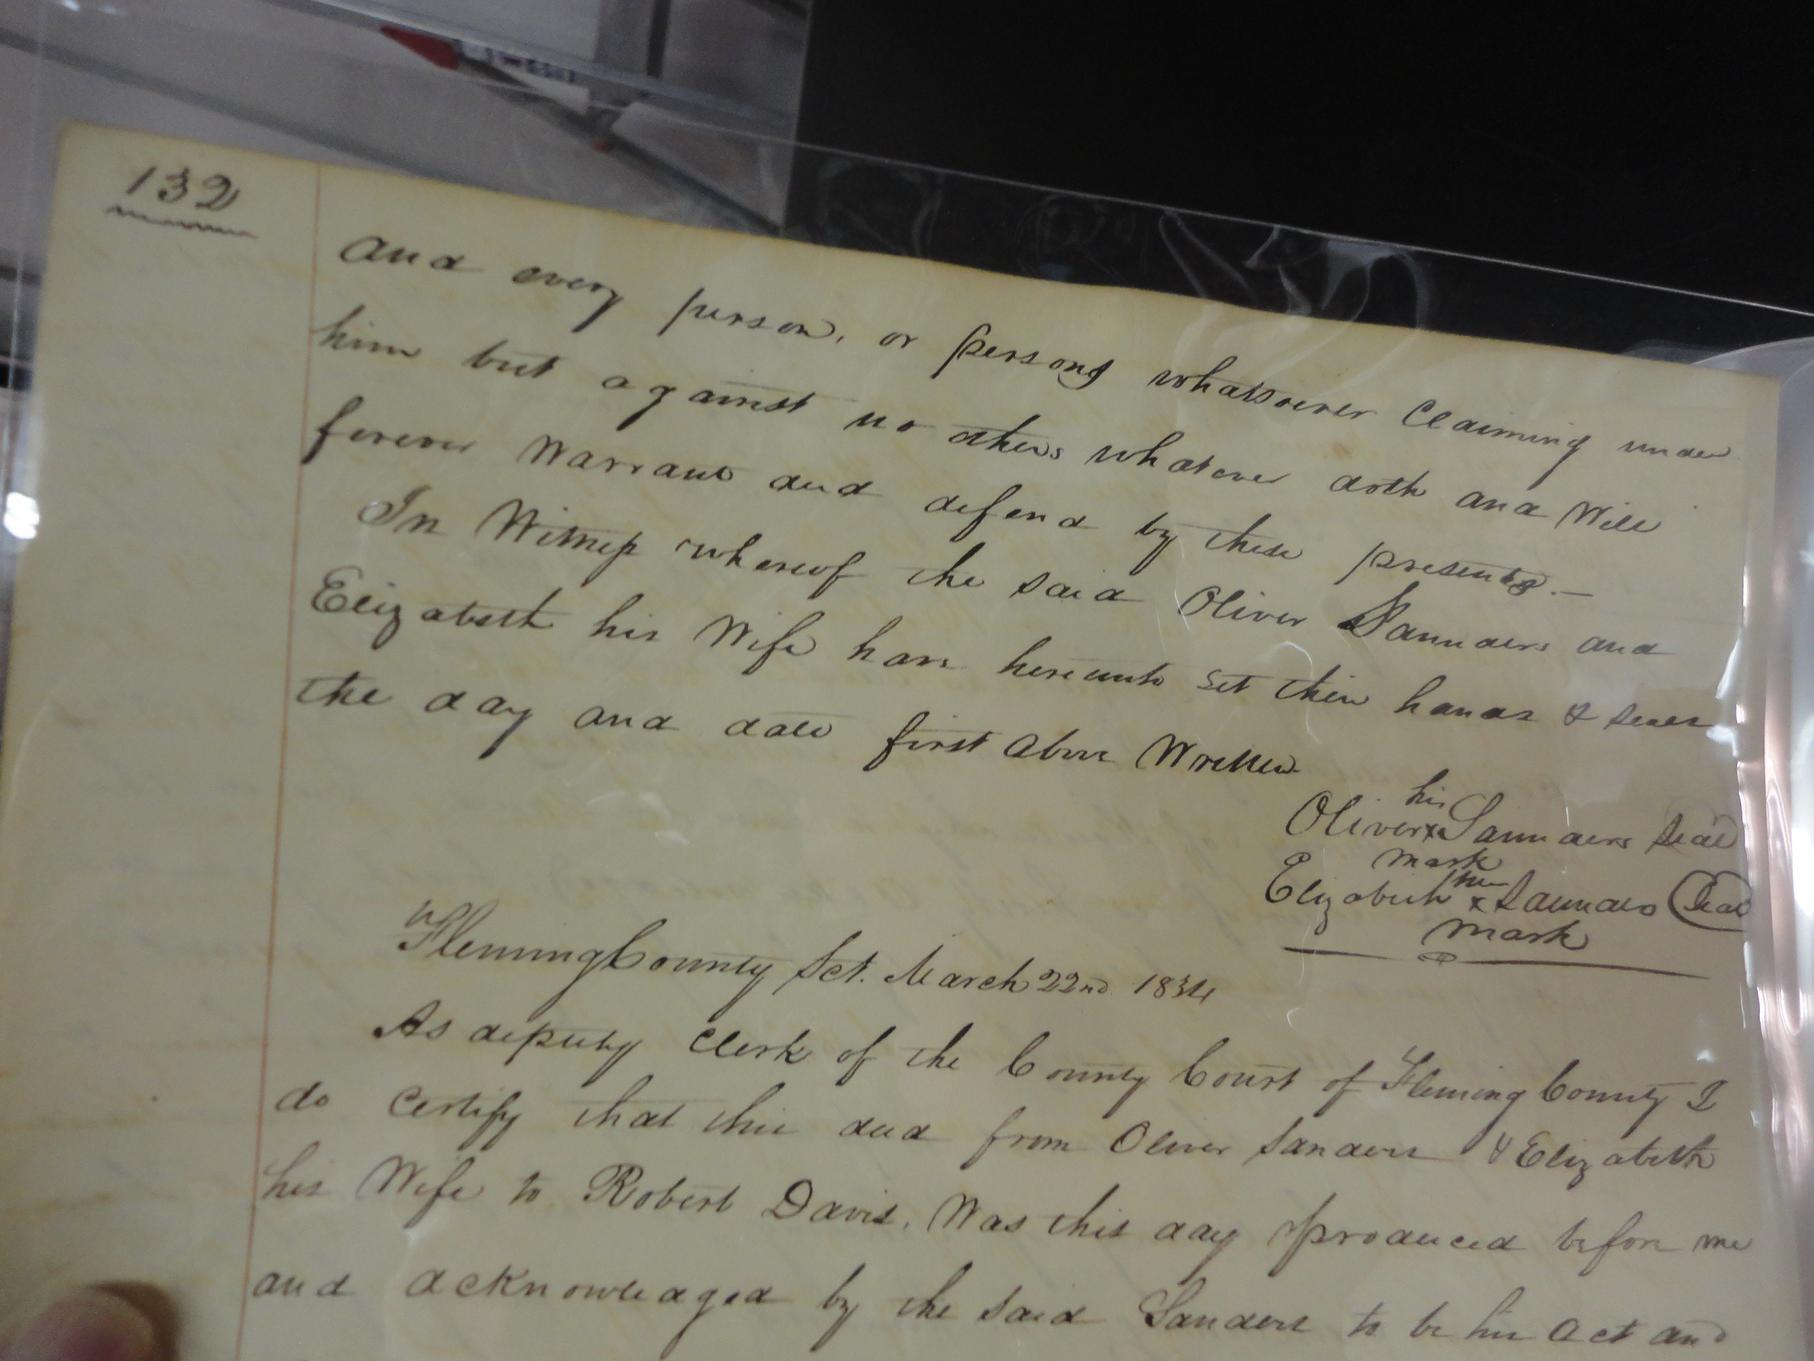 132
and every person, or persons whatsoever Claiming under
him but against no others whatever doth and Will
forever Warrant and defend by these presents.—
In Witness whereof the said Oliver Saunders and
Elizabeth his Wife have hereunto set their hands & seals
the day and date first above Written
his
Oliver x Saunders Seal
mark
her
Elizabeth x Saunders Seal
mark
Fleming County Sct. March 22nd 1834
As deputy Clerk of the County Court of Fleming County I
do Certify that this deed from Oliver Sanders & Elizabeth
his Wife to Robert Davis, Was this day produced before me
and acknowledged by the said Sanders to be his act and